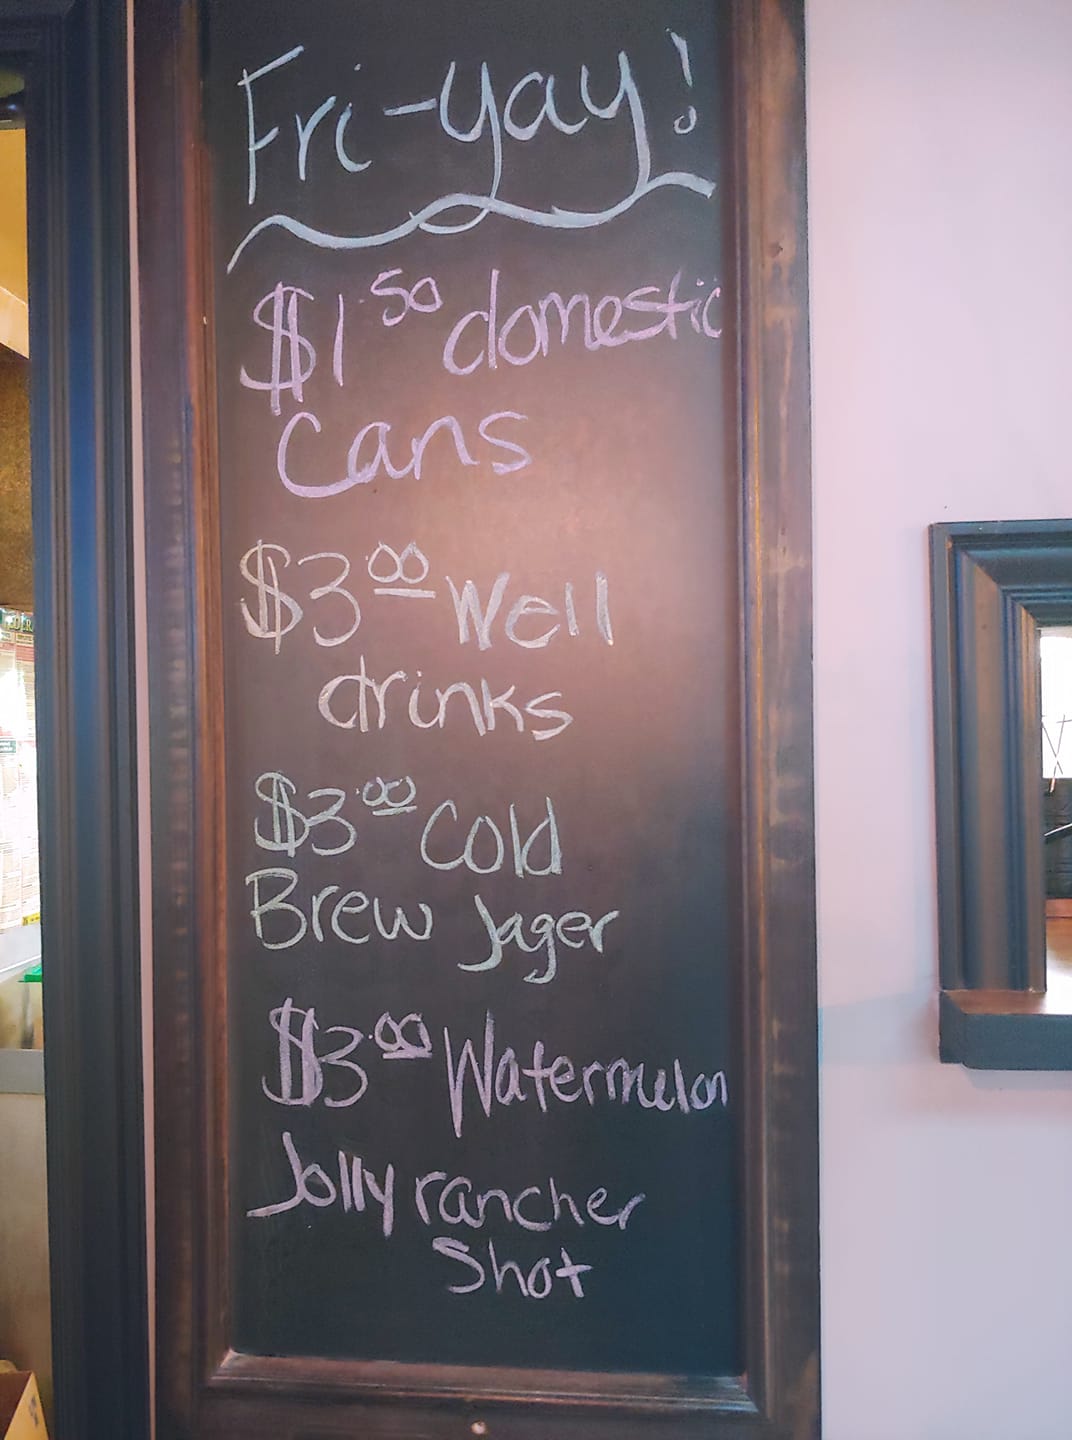 Fri-yay!
$1.50 domestic
Cans
$3.00 Well
drinks
$3.00 Cold
Brew Jager
$3.00 Watermelon
Jolly rancher
Shot